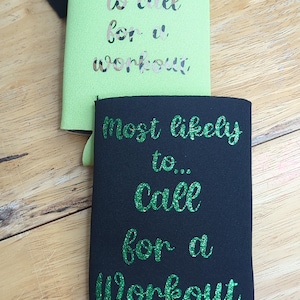 to call
for a
workout
Most likely
to...
Call
for a
Workout